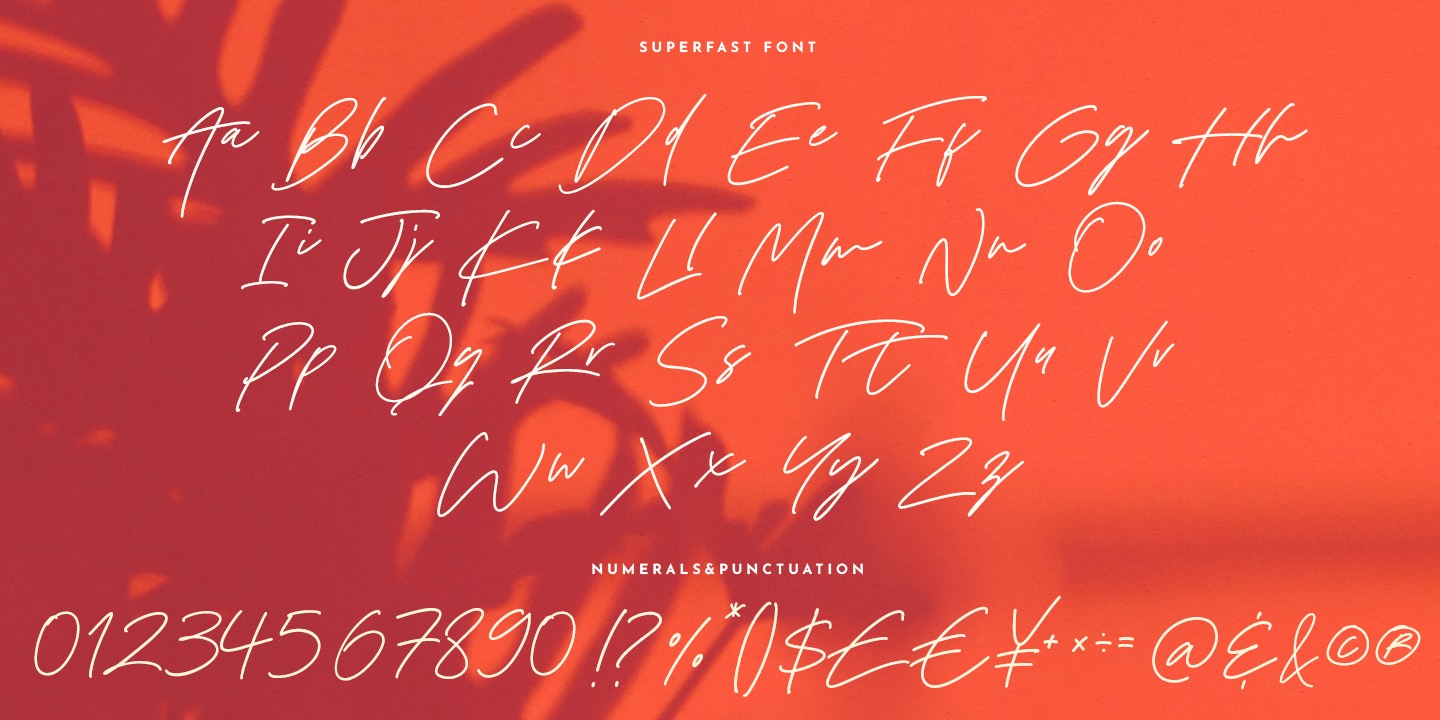 SUPERFAST FONT
Aa Bb Cc Dd Ee Ff Gg Hh
Ii Jj Kk Ll Mm Nn Oo
Pp Qq Rr Ss Tt Uu Vv
Ww Xx Yy Zz
NUMERALS&PUNCTUATION
01234567890!?%*()$££¥+×÷=@&&©®